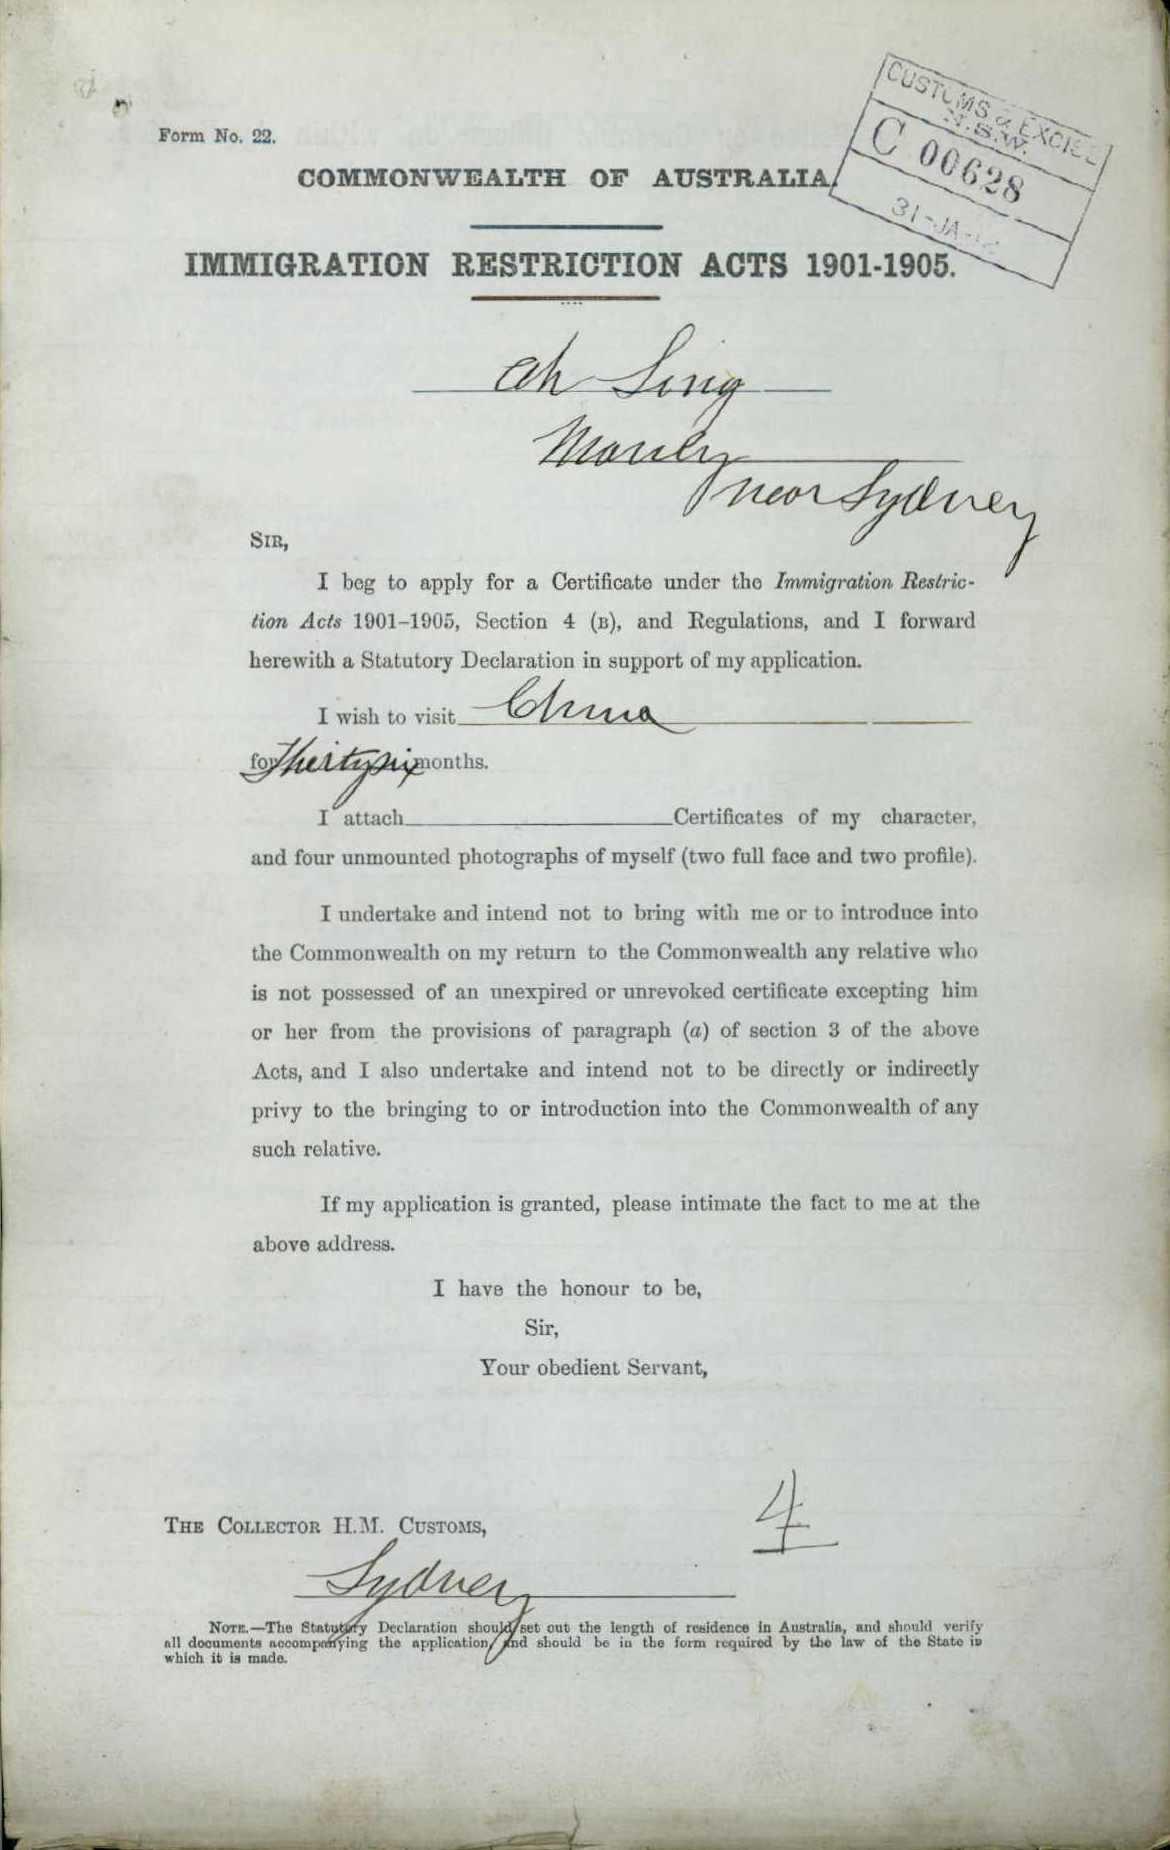 CUSTOMS & EXCISE
N.S.W.
C 00628
31-JA-12
Form No. 22.
COMMONWEALTH OF AUSTRALIA.
IMMIGRATION RESTRICTION ACTS 1901-1905.
Ah Ling
Manly
near Sydney
SIR,
I beg to apply for a Certificate under the Immigration Restric-
tion Acts 1901-1905, Section 4 (B), and Regulations, and I forward
herewith a Statutory Declaration in support of my application.
I wish to visit China
for Thirtysix months.
I attach Certificates of my character,
and four unmounted photographs of myself (two full face and two profile).
I undertake and intend not to bring with me or to introduce into
the Commonwealth on my return to the Commonwealth any relative who
is not possessed of an unexpired or unrevoked certificate excepting him
or her from the provisions of paragraph (a) of section 3 of the above
Acts, and I also undertake and intend not to be directly or indirectly
privy to the bringing to or introduction into the Commonwealth of any
such relative.
If my application is granted, please intimate the fact to me at the
above address.
I have the honour to be,
Sir,
Your obedient Servant,
4
THE COLLECTOR H.M. CUSTOMS,
Sydney
NOTE.—The Statutory Declaration should set out the length of residence in Australia, and should verify
all documents accompanying the application, and should be in the form required by the law of the State in
which it is made.